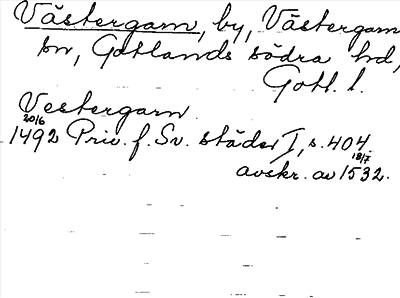 Västergarn, by, Västergarn
sn, Gotlands södra hd,
Gotl. l.
Vestergarn
20/6
1492 Priv. f. Sv. städer I, s. 404
18/7
avskr. av 1532.